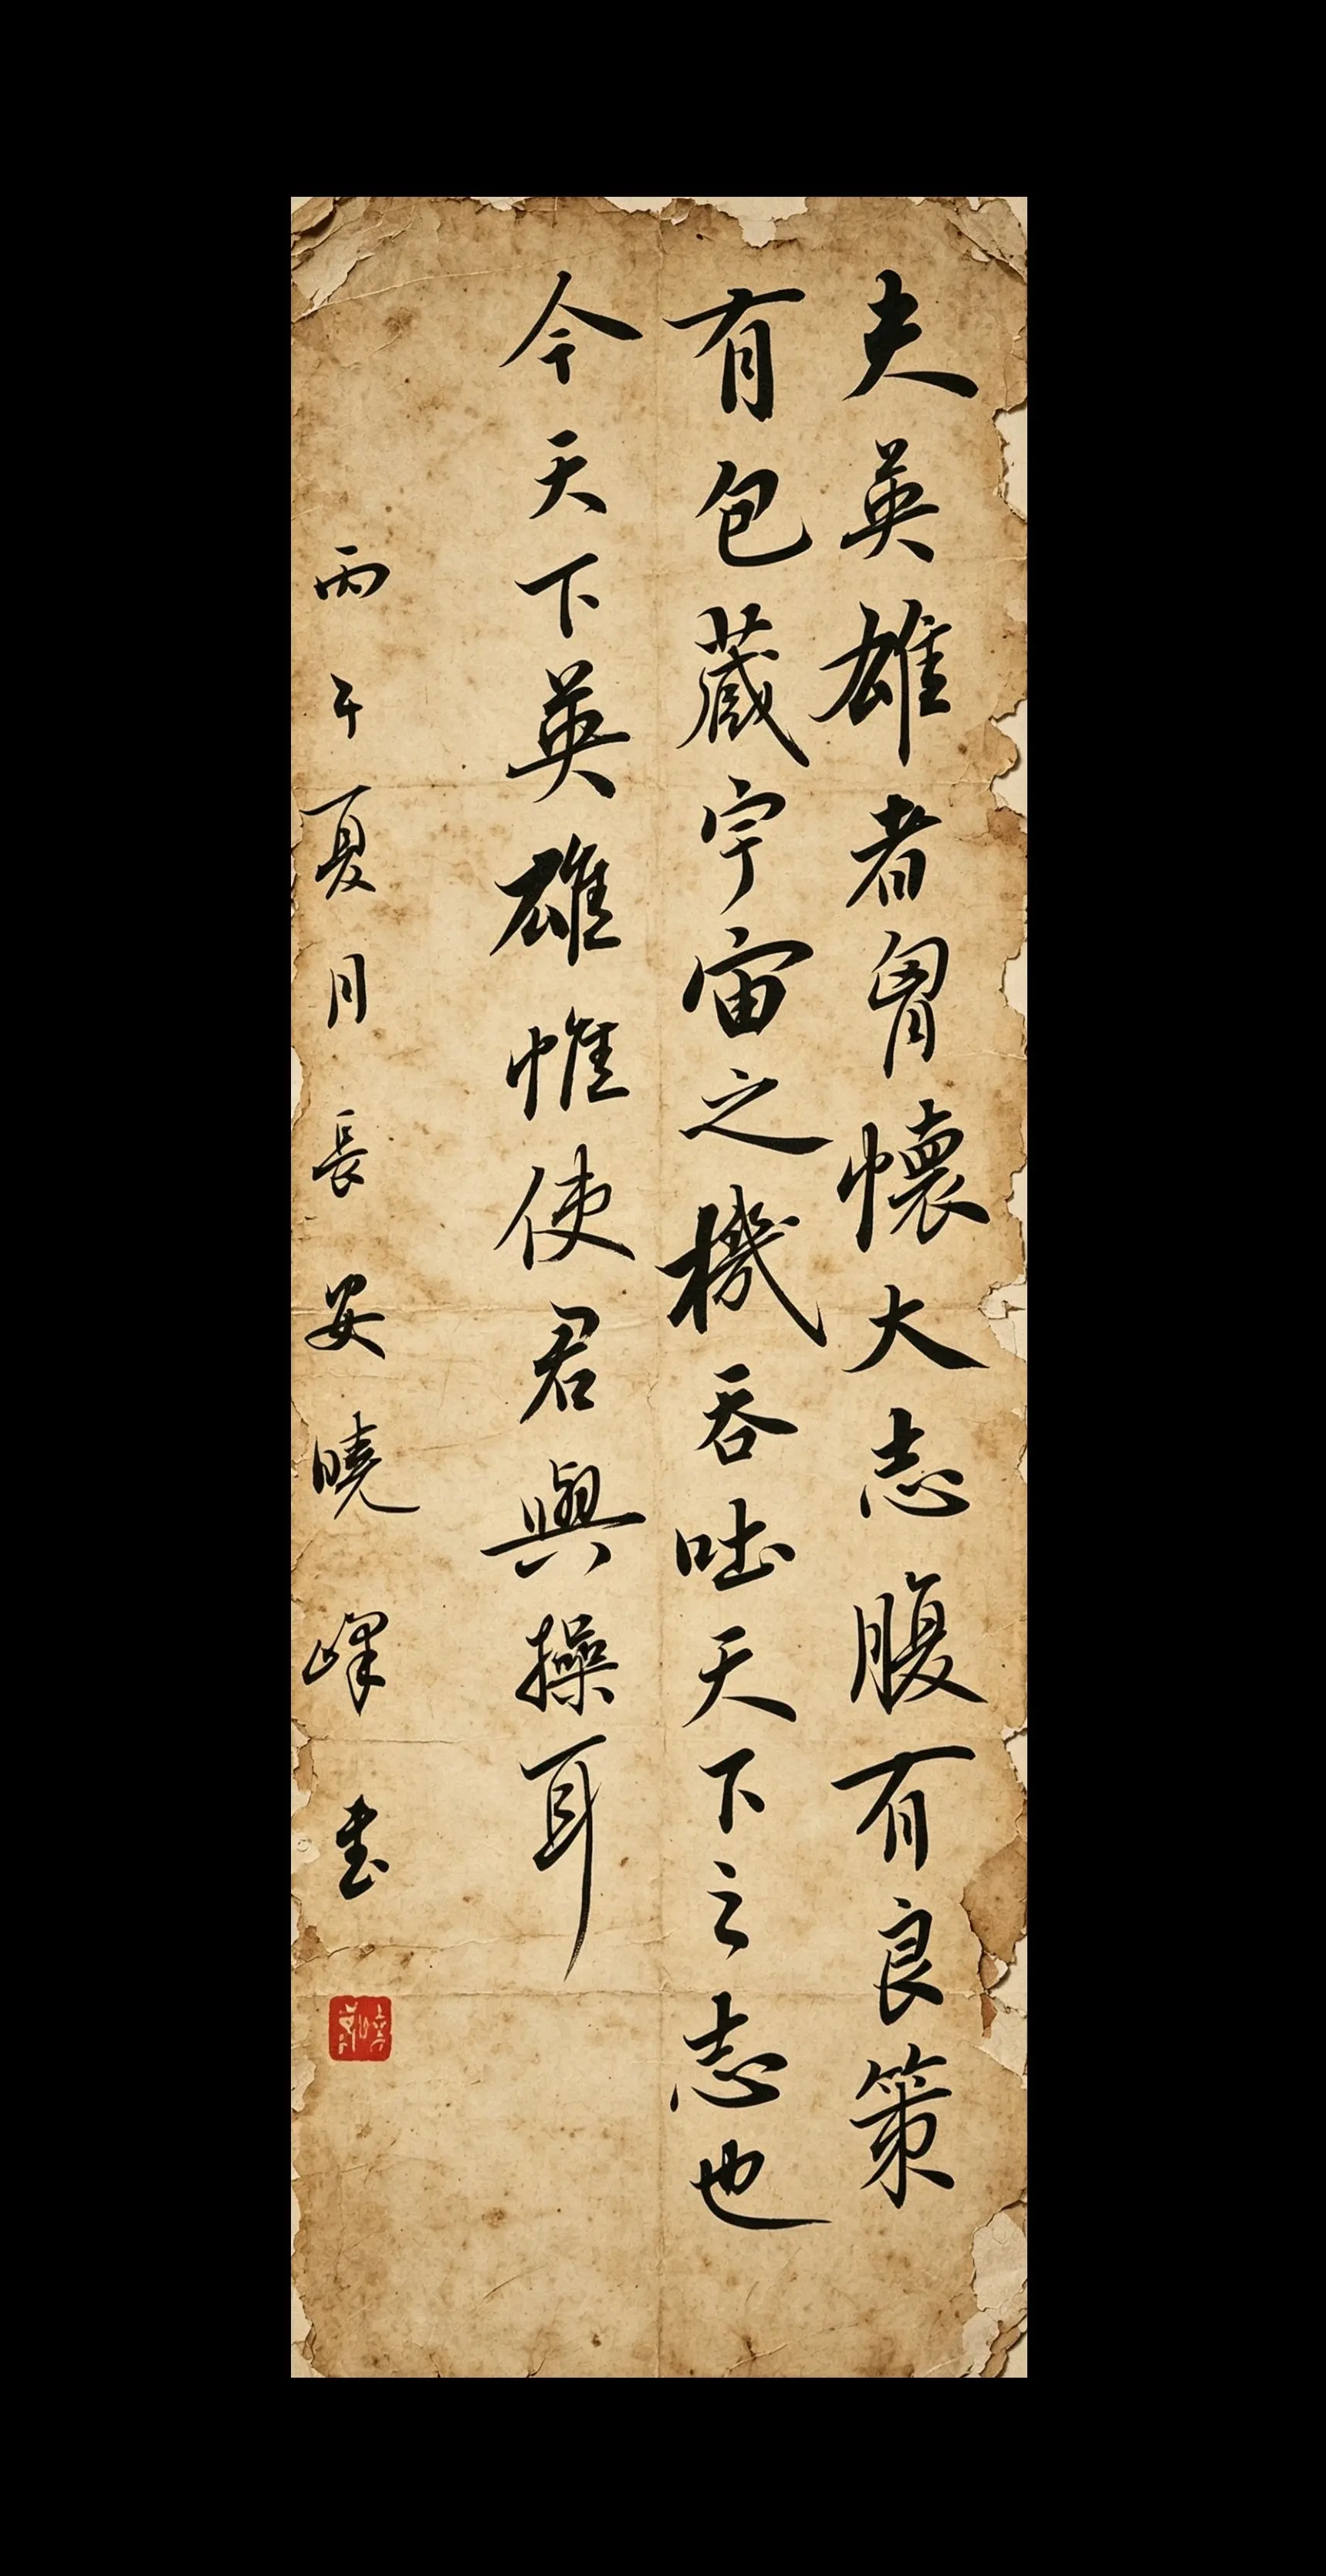 夫英雄者胷懷大志腹有良策
有包藏宇宙之機吞吐天下之志也
今天下英雄惟使君與操耳
丙午夏月長安曉峰書